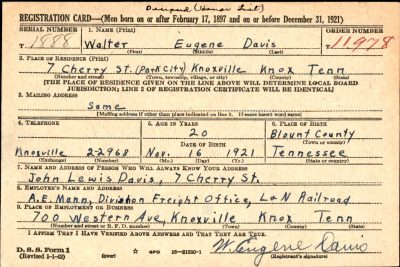 REGISTRATION CARD—(Men born on or after February 17, 1897 and on or before December 31, 1921)
SERIAL NUMBER 1. NAME (Print) ORDER NUMBER
T 1888 Walter Eugene Davis 11978
(First) (Middle) (Last)
2. PLACE OF RESIDENCE (Print)
7 Cherry St. (Park City) Knoxville Knox Tenn
(Number and street) (Town, township, village, or city) (County) (State)
[THE PLACE OF RESIDENCE GIVEN ON THE LINE ABOVE WILL DETERMINE LOCAL BOARD
JURISDICTION; LINE 2 OF REGISTRATION CERTIFICATE WILL BE IDENTICAL]
3. MAILING ADDRESS
Same
(Mailing address if other than place indicated on line 2. If same insert word same)
4. TELEPHONE 5. AGE IN YEARS 6. PLACE OF BIRTH
20 Blount County
DATE OF BIRTH (Town or county)
Knoxville 22968 Nov. 16 1921 Tennessee
(Exchange) (Number) (Mo.) (Day) (Yr.) (State or country)
7. NAME AND ADDRESS OF PERSON WHO WILL ALWAYS KNOW YOUR ADDRESS
John Lewis Davis, 7 Cherry St.
8. EMPLOYER'S NAME AND ADDRESS
A.E. Mann, Division Freight Office, L&N Railroad
9. PLACE OF EMPLOYMENT OR BUSINESS
700 Western Ave, Knoxville Knox Tenn
(Number and street or R. F. D. number) (Town) (County) (State)
I AFFIRM THAT I HAVE VERIFIED ABOVE ANSWERS AND THAT THEY ARE TRUE.
D. S. S. Form 1
(Revised 1-1-42) (over) 16—21630-1
W. Eugene Davis
(Registrant's signature)